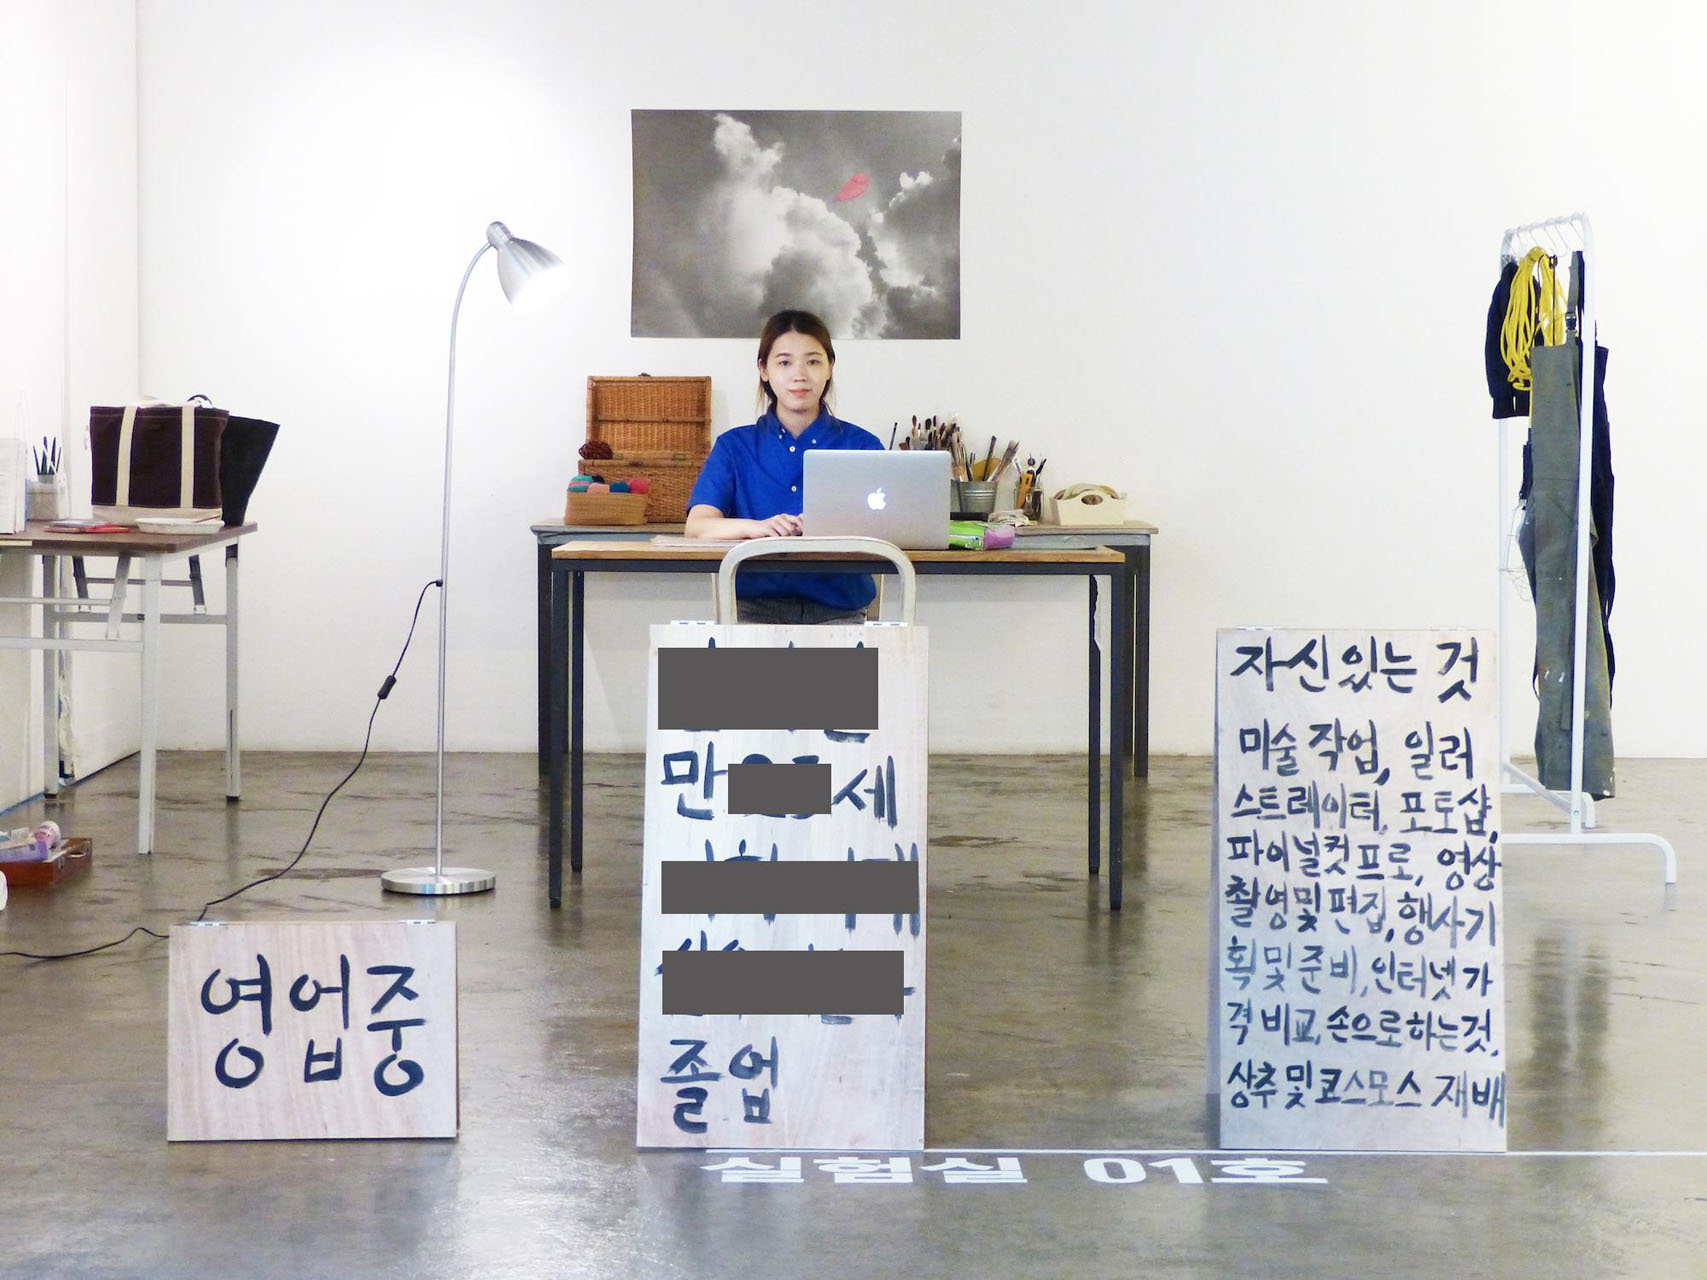 영업중
만 세
졸업
자신있는 것
미술 작업, 일러
스트레이터, 포토샵,
파이널컷 프로, 영상
촬영및편집, 행사기
획 및 준비, 인터넷 가
격 비교, 손으로하는것,
상추 및 코스모스 재배
실험실 01호